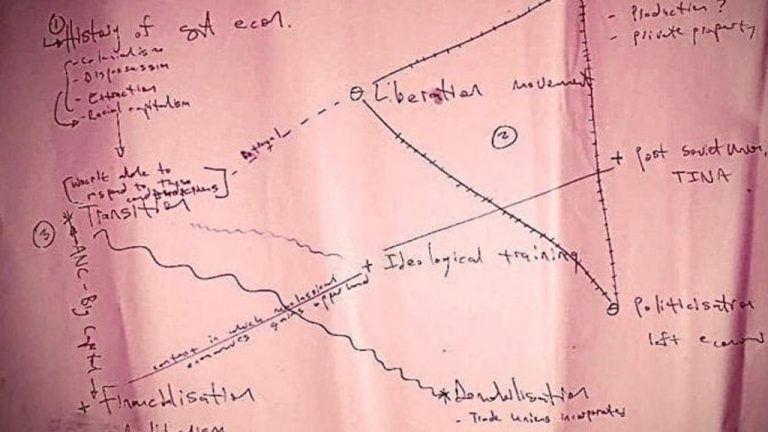 ① History of SA econ.
- Colonialism
- Dispossession
- Extraction
- Racial capitalism
- Production ?
- private property
Liberation movement
②
Betrayal
[Wasn't able to
respond to these
Transition
③
+ Post Soviet Union,
TINA
+ Ideological training
* ANC - Big Capital
context in which neoclassical
economics gains upper hand
Politicisation
left econom
+ Financialisation
* Demobilisation
- Trade Unions incorporated